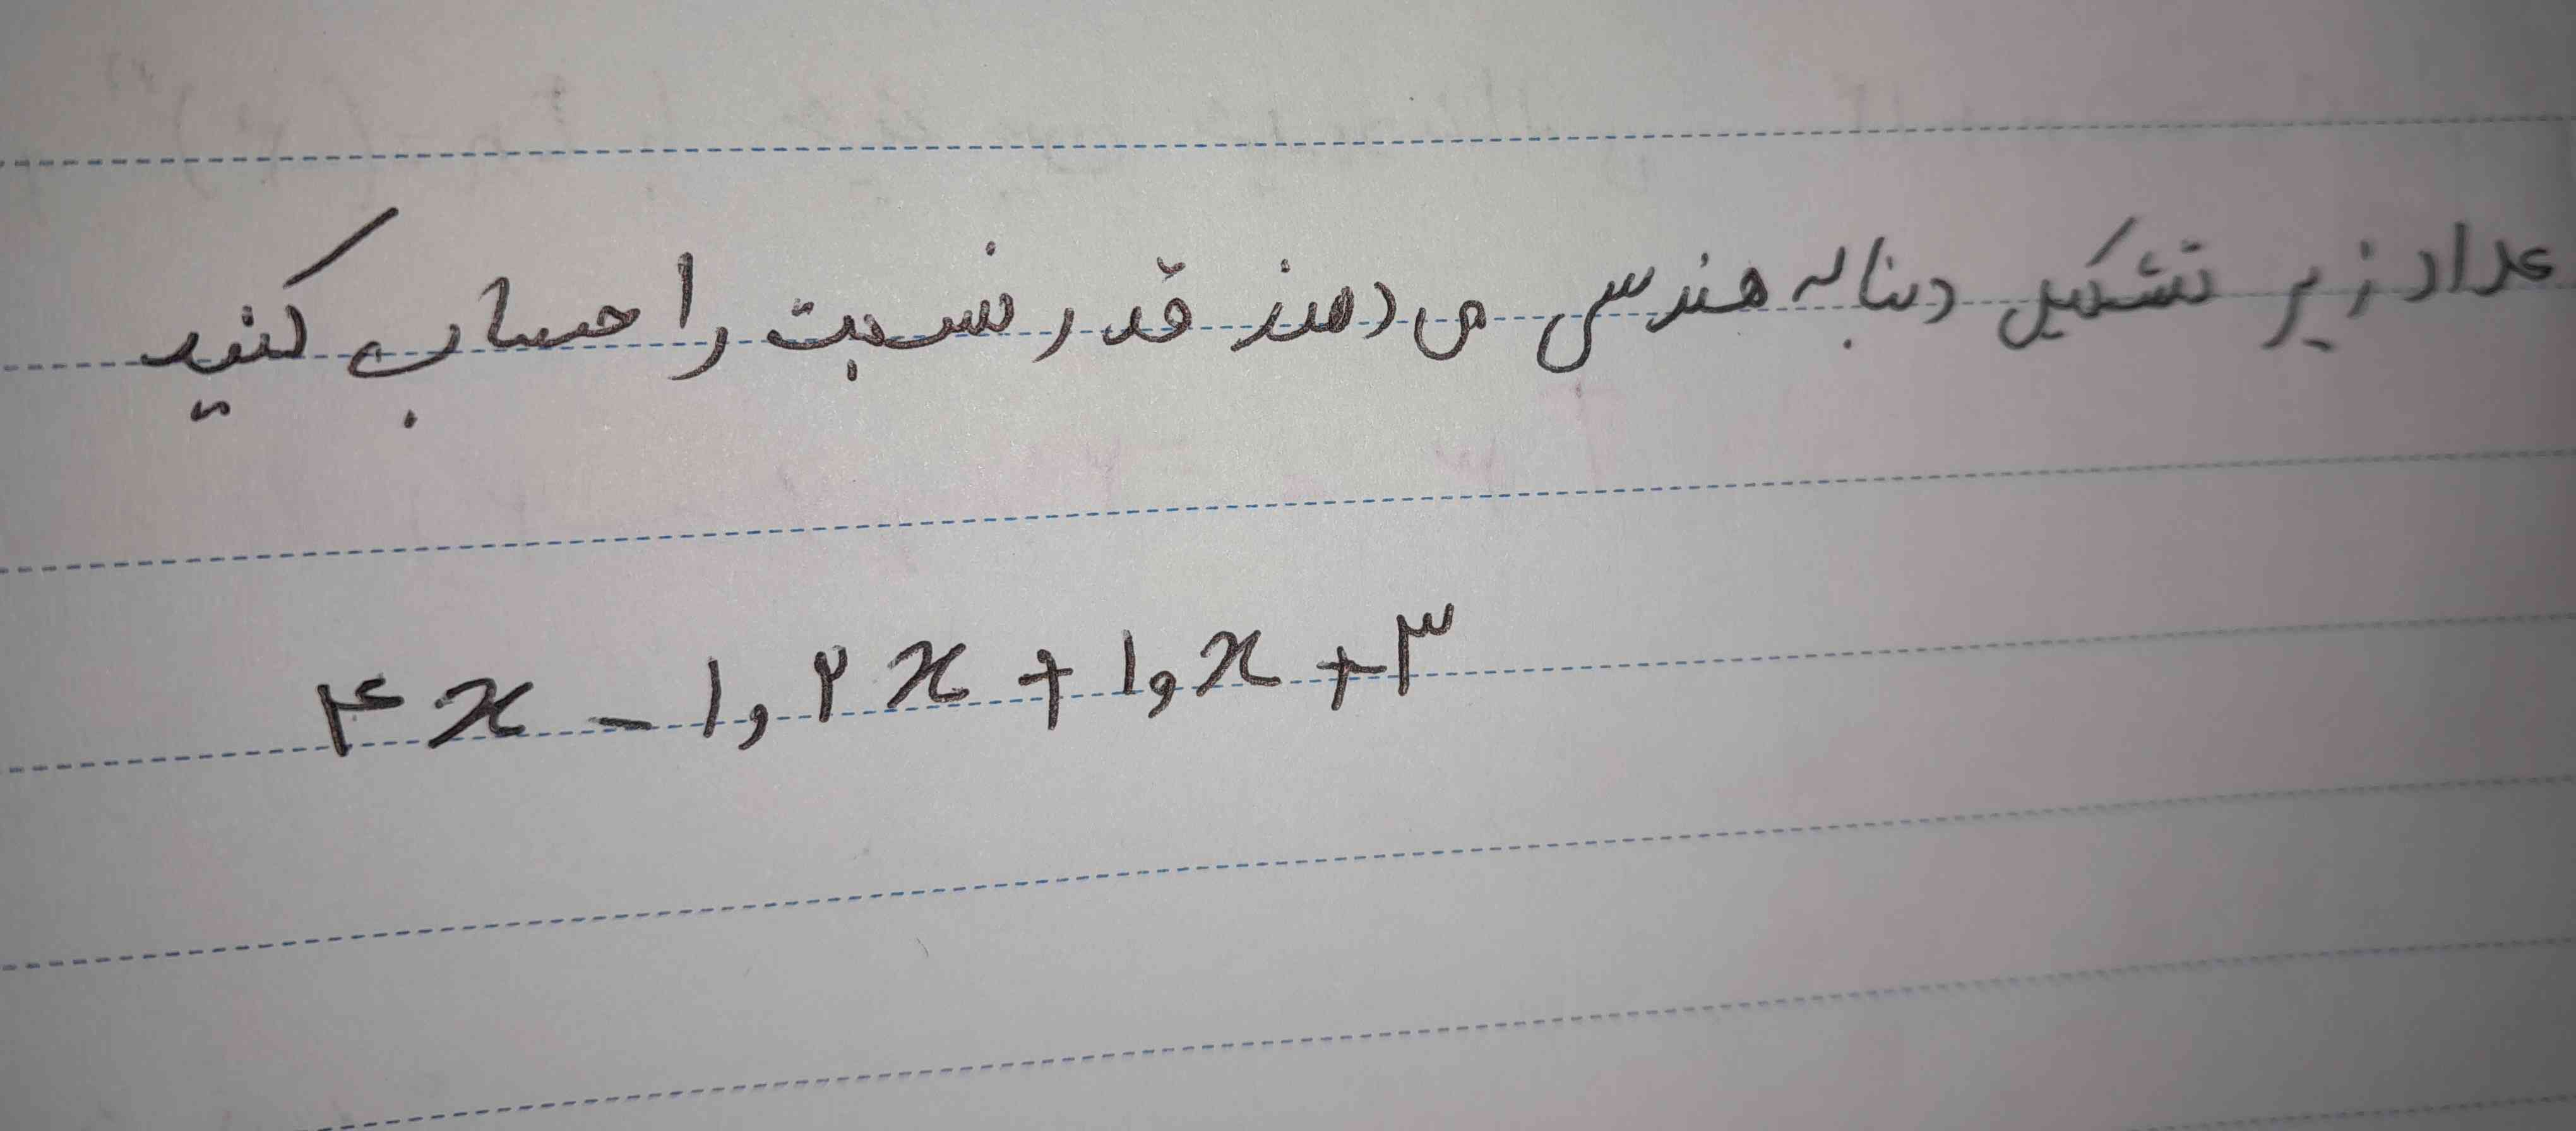 عداد زیر تشکیل دنباله هندسی می دهند قدر نسبت را حساب کنید
۴x - ۱, ۲x + ۱, x + ۳